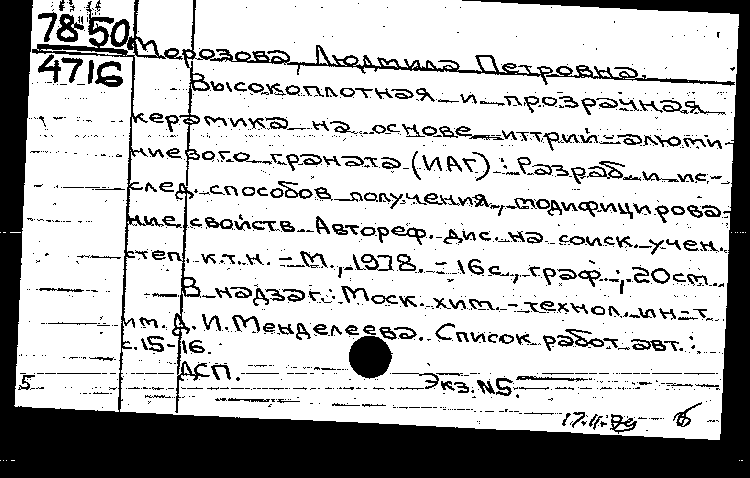 78-50
4716
Морозова, Людмила Петровна.
Высокоплотная и прозрачная
керамика на основе иттрий-алюми-
ниевого граната (ИАГ): Разраб. и ис-
след. способов получения, модифицирова-
ние свойств. Автореф. дис. на соиск. учен.
степ. к.т.н. - М., 1978. - 16с., граф.; 20см.
В надзаг.: Моск. хим.-технол. ин-т
им. Д. И. Менделеева. Список работ авт.:
с. 15-16.
ДСП.
5
Экз. N5.